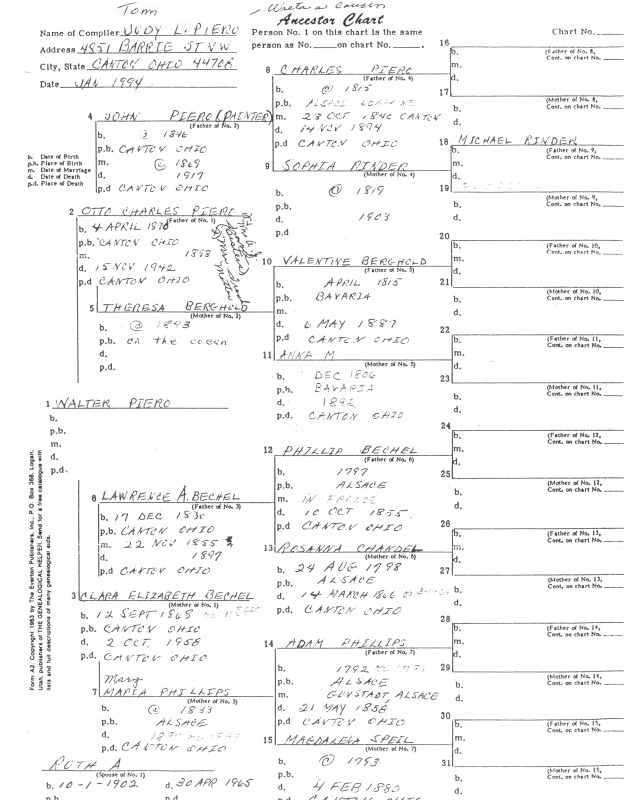 Tom
Walter's Cousin
Ancestor Chart
Name of Compiler JUDY L. PIERO
Address 4851 BARRIE ST NW
City, State CANTON OHIO 44708
Date JAN 1994
Person No. 1 on this chart is the same
person as No. ____ on chart No. ____.
Chart No. ____
b. Date of Birth
p.b. Place of Birth
m. Date of Marriage
d. Date of Death
p.d. Place of Death
1 WALTER PIERO
b.
p.b.
m.
d.
p.d.
RUTH A
(Spouse of No. 1)
b. 10-1-1902 d. 30 APR 1965
p.b. p.d.
2 OTTO CHARLES PIERO
(Father of No. 1)
b. 4 APRIL 1870
p.b. CANTON OHIO
m. 1898
d. 15 NOV 1942
p.d CANTON OHIO
3 CLARA ELIZABETH BECHEL
(Mother of No. 1)
b. 12 SEPT 1868
p.b. CANTON OHIO
d. 2 OCT 1958
p.d. CANTON OHIO
4 JOHN PIERO (PAINTER)
(Father of No. 2)
b. @ 1846
p.b. CANTON OHIO
m. @ 1869
d. 1917
p.d CANTON OHIO
5 THERESA BERGHOLD
(Mother of No. 2)
b. @ 1843
p.b. on the ocean
d.
p.d.
6 LAWRENCE A. BECHEL
(Father of No. 3)
b. 17 DEC 1830
p.b. CANTON OHIO
m. 22 NOV 1855
d. 1897
p.d CANTON OHIO
Mary
7 MARIA PHILLIPS
(Mother of No. 3)
b. @ 1833
p.b. ALSACE
d.
p.d. CANTON OHIO
8 CHARLES PIERO
(Father of No. 4)
b. @ 1815
p.b. ALSACE LORRAINE
m. 28 OCT 1840 CANTON
d. 14 NOV 1894
p.d CANTON OHIO
9 SOPHIA RINDER
(Mother of No. 4)
b. @ 1819
p.b.
d. 1903
p.d
10 VALENTINE BERGHOLD
(Father of No. 5)
b. APRIL 1815
p.b. BAVARIA
m.
d. 6 MAY 1887
p.d CANTON OHIO
11 ANNA M
(Mother of No. 5)
b. DEC 1806
p.b. BAVARIA
d. 1892
p.d. CANTON OHIO
12 PHILLIP BECHEL
(Father of No. 6)
b. 1797
p.b. ALSACE
m. IN FRANCE
d. 10 OCT 1855
p.d CANTON OHIO
13 ROSANNA CHANDEL
(Mother of No. 6)
b. 24 AUG 1798
p.b. ALSACE
d. 14 MARCH 1866
p.d. CANTON OHIO
14 ADAM PHILLIPS
(Father of No. 7)
b. 1792
p.b. ALSACE
m. GUNSTADT, ALSACE
d. 21 MAY 1838
p.d CANTON OHIO
15 MAGDALENA SPEIL
(Mother of No. 7)
b. @ 1793
p.b.
d. 4 FEB 1880
16
b.
(Father of No. 8,
Cont. on chart No. ____
m.
d.
17
(Mother of No. 8,
Cont. on chart No. ____
b.
d.
18 MICHAEL RINDER
b.
(Father of No. 9,
Cont. on chart No. ____
m.
d.
19
(Mother of No. 9,
Cont. on chart No. ____
b.
d.
20
b.
(Father of No. 10,
Cont. on chart No. ____
m.
d.
21
(Mother of No. 10,
Cont. on chart No. ____
b.
d.
22
b.
(Father of No. 11,
Cont. on chart No. ____
m.
d.
23
(Mother of No. 11,
Cont. on chart No. ____
b.
d.
24
b.
(Father of No. 12,
Cont. on chart No. ____
m.
d.
25
(Mother of No. 12,
Cont. on chart No. ____
b.
d.
26
b.
(Father of No. 13,
Cont. on chart No. ____
m.
d.
27
(Mother of No. 13,
Cont. on chart No. ____
b.
d.
28
b.
(Father of No. 14,
Cont. on chart No. ____
m.
d.
29
(Mother of No. 14,
Cont. on chart No. ____
b.
d.
30
b.
(Father of No. 15,
Cont. on chart No. ____
m.
d.
31
(Mother of No. 15,
Cont. on chart No. ____
b.
d.
Form A2. Copyright 1963 by The Everton Publishers, Inc., P.O. Box 368, Logan,
Utah, publishers of THE GENEALOGICAL HELPER. Send for a free catalogue with
lists and full descriptions of many genealogical aids.